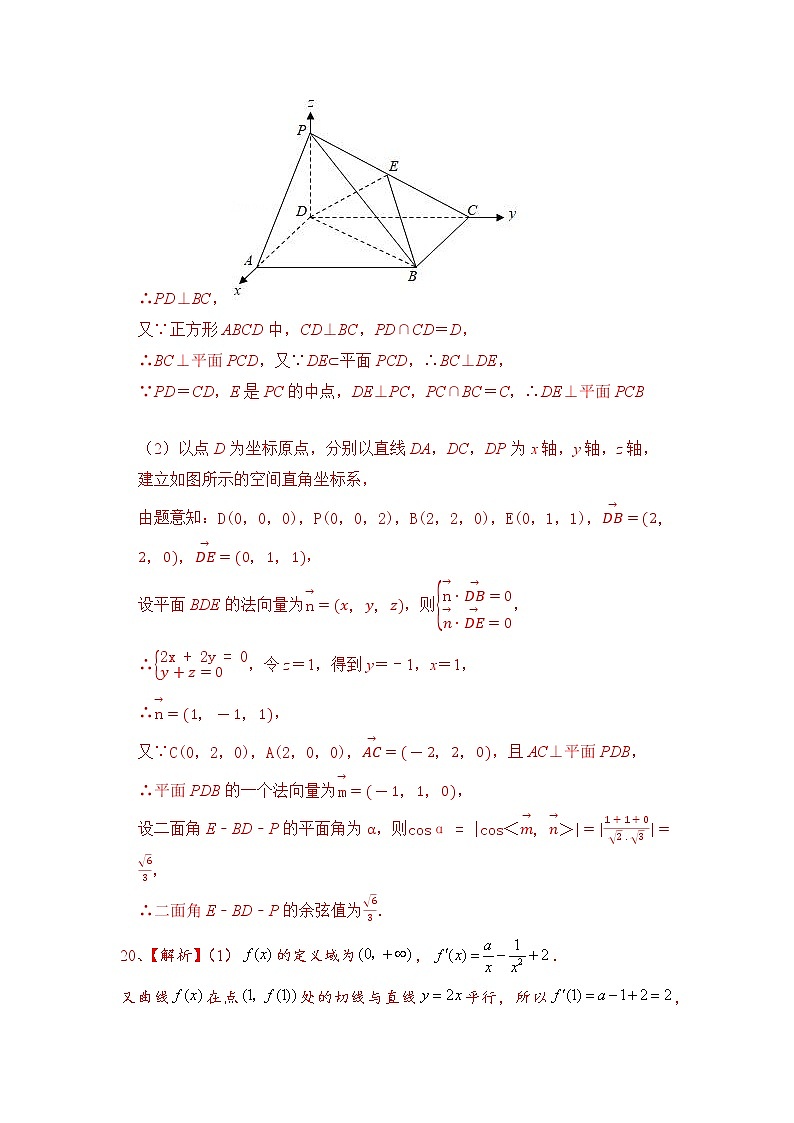 z
P
E
D
C
y
A
B
x
∴PD⊥BC，
又∵正方形 ABCD 中，CD⊥BC，PD∩CD＝D，
∴BC⊥平面 PCD，又∵DE⊂平面 PCD，∴BC⊥DE，
∵PD＝CD，E 是 PC 的中点，DE⊥PC，PC∩BC＝C，∴DE⊥平面 PCB
（2）以点 D 为坐标原点，分别以直线 DA，DC，DP 为 x 轴，y 轴，z 轴，
建立如图所示的空间直角坐标系，
由题意知：D(0，0，0)，P(0，0，2)，B(2，2，0)，E(0，1，1)，$\overrightarrow{DB}$＝(2，
2，0)，$\overrightarrow{DE}$＝(0，1，1)，
设平面 BDE 的法向量为$\vec{n}$＝(x，y，z)，则$\begin{cases}\vec{n}\cdot\overrightarrow{DB}=0\\\vec{n}\cdot\overrightarrow{DE}=0\end{cases}$，
∴$\begin{cases}2x+2y=0\\y+z=0\end{cases}$，令 z＝1，得到 y＝﹣1，x＝1，
∴$\vec{n}$＝(1，－1，1)，
又∵C(0，2，0)，A(2，0，0)，$\overrightarrow{AC}$＝(－2，2，0)，且 AC⊥平面 PDB，
∴平面 PDB 的一个法向量为$\vec{m}$＝(－1，1，0)，
设二面角 E﹣BD﹣P 的平面角为 α，则cos α = |cos＜$\vec{m}$，$\vec{n}$＞|＝|$\frac{1+1+0}{\sqrt{2}.\sqrt{3}}$|＝
$\frac{\sqrt{6}}{3}$，
∴二面角 E﹣BD﹣P 的余弦值为$\frac{\sqrt{6}}{3}$．
20、【解析】（1） $f(x)$ 的定义域为 $(0,+\infty)$， $f'(x)=\frac{a}{x}-\frac{1}{x^2}+2$．
又曲线 $f(x)$ 在点 $(1, f(1))$ 处的切线与直线 $y=2x$ 平行，所以 $f'(1)=a-1+2=2$，